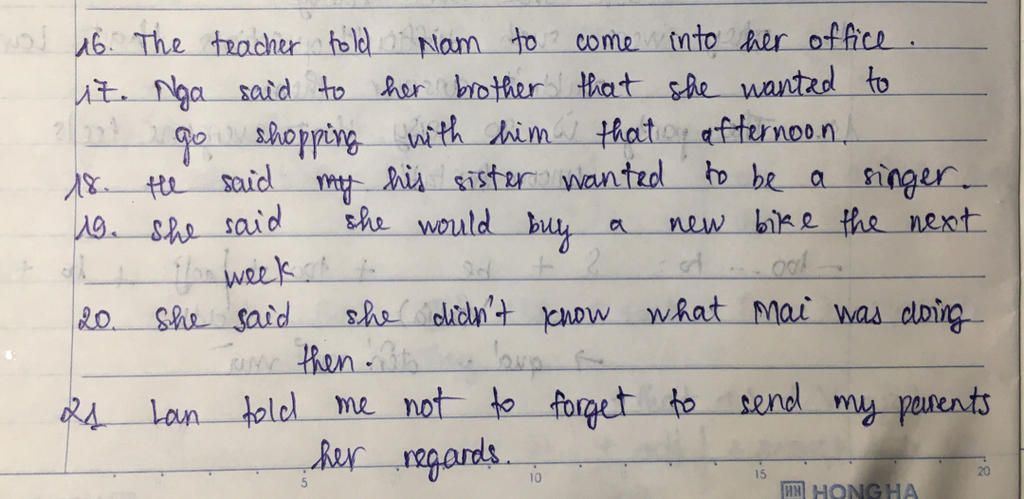 16. The teacher told Nam to come into her office.
17. Nga said to her brother that she wanted to
go shopping with him that afternoon.
18. He said my his sister wanted to be a singer.
19. She said she would buy a new bike the next
week.
20. She said she didn't know what Mai was doing
then.
21 Lan told me not to forget to send my parents
her regards.
5 10 15 20
HH HONG HA